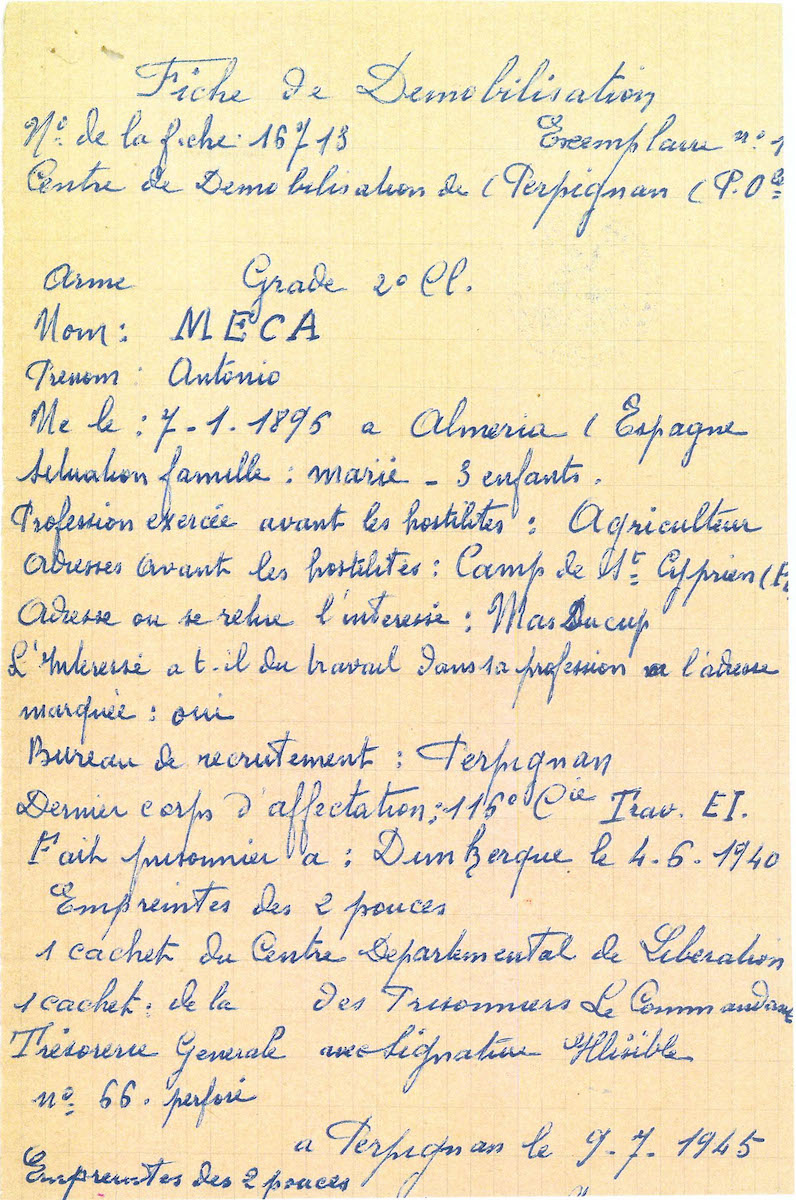 Fiche de Demobilisation
N° de la fiche: 16713 Exemplaire n° 1
Centre de Demobilisation de (Perpignan (P.O
Arme Grade 2° Cl.
Nom: MECA
Prenom: Antonio
Ne le: 7-1-1896 a Almeria (Espagne
Situation famille: marié - 3 enfants.
Profession exercée avant les hostilites: Agriculteur
Adresses avant les hostilités: Camp de St Cyprien (
Adresse ou se retire l'interessé: Mas Ducup
L'Interessé a t-il du travail dans sa profession a l'adresse
marquée: oui
Bureau de recrutement: Perpignan
Dernier corps d'affectation: 116e Cie Trav. EI.
Fait prisonnier a: Dunkerque le 4.6.1940
Empreintes des 2 pouces
1 cachet du Centre Departemental de Liberation
1 cachet: de la des Prisonniers Le Commandant
Trésorerie Generale avec Signature Illisible
n° 66. perforé
a Perpignan le 9.7.1945
Empreintes des 2 pouces